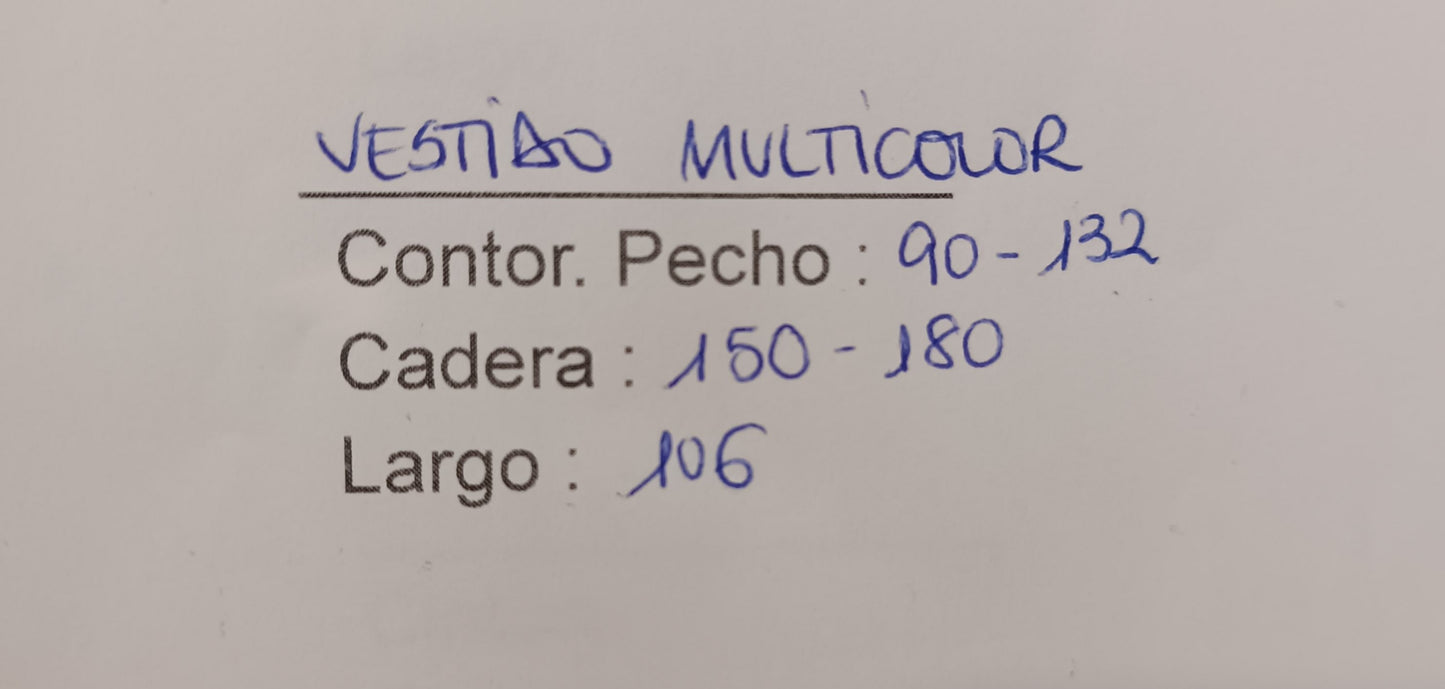 VESTIDO MULTICOLOR
Contor. Pecho : 90 - 132
Cadera : 150 - 180
Largo : 106